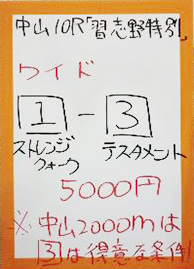 中山10R「習志野特別」
ワイド
1 - 3
ストレンジ
クォーク
テスタメント
5000円
※中山2000mは
3は得意な条件!